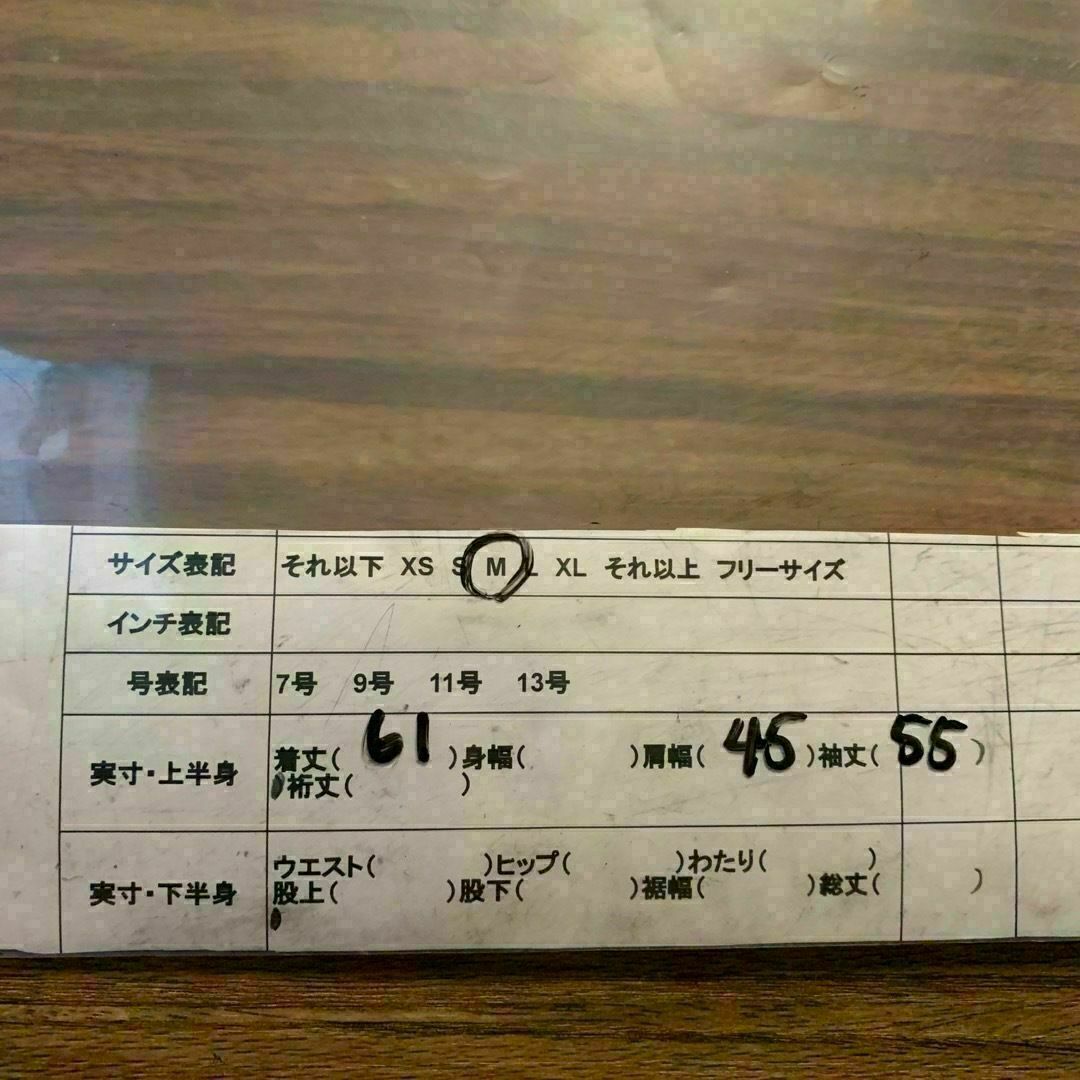 サイズ表記 それ以下 XS S M L XL それ以上 フリーサイズ
インチ表記
号表記 7号 9号 11号 13号
実寸・上半身 着丈( 61 )身幅( )肩幅( 45 )袖丈( 55 )
裄丈( )
実寸・下半身 ウエスト( )ヒップ( )わたり( )
股上( )股下( )裾幅( )総丈( )